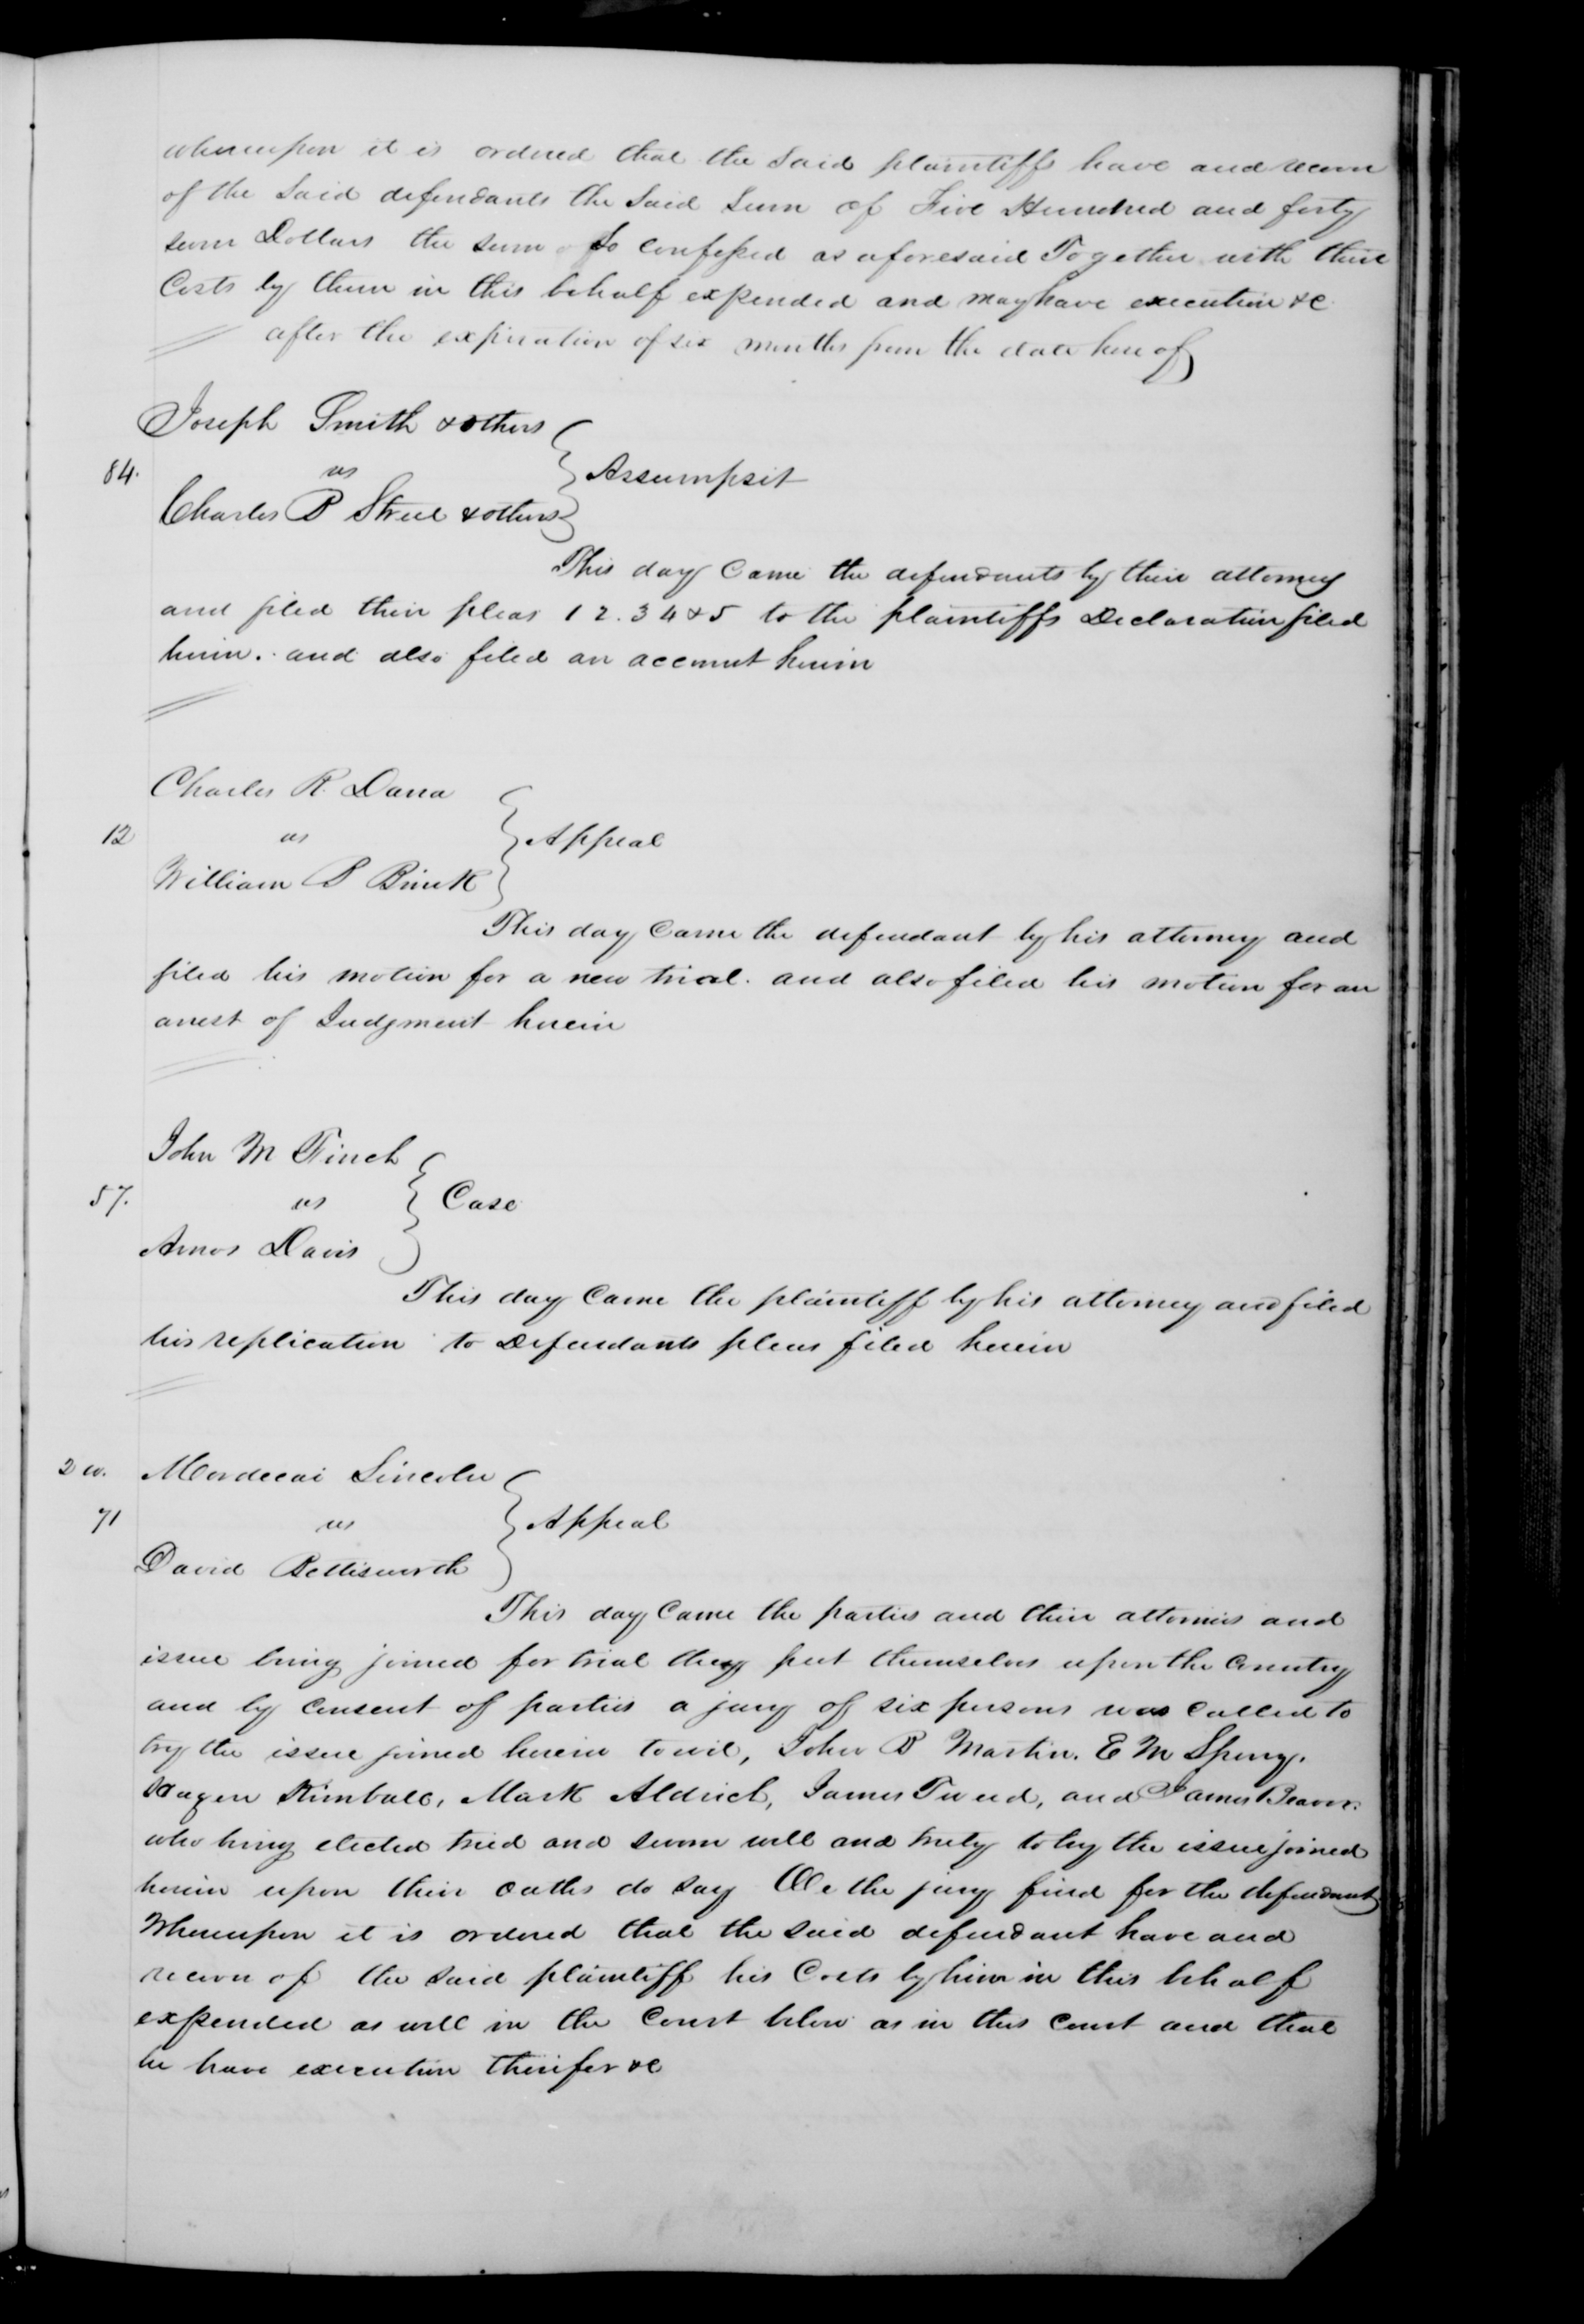 whereupon it is ordered that the Said plaintiffs have and recover
of the Said defendants the Said Sum of Five Hundred and forty
seven Dollars the sum so confessed as aforesaid Together with their
Costs by them in this behalf expended and may have execution &c
after the expiration of six months from the date here of
Joseph Smith & others
84. vs } Assumpsit
Charles B Street & others
This day Came the defendants by their attorney
and filed their pleas 1 2. 3 4 & 5 to the plaintiffs Declaration filed
herein. and also filed an account herein
Charles R. Dana
12 vs } Appeal
William B Brink
This day Came the defendant by his attorney and
filed his motion for a new trial. and also filed his motion for an
arrest of Judgment herein
John M Finch
57. vs } Case
Amos Davis
This day Came the plaintiff by his attorney and filed
his replication to Defendants pleas filed herein
2 w. Mordecai Lincoln
71 vs } Appeal
David Bettisworth
This day Came the parties and their attornies and
issue being joined for trial they put themselves upon the Country
and by Consent of parties a jury of six persons was called to
try the issue joined herein towit, John B Martin. E M Sperry.
Hazen Kimball, Mark Aldrich, James Tweed, and James Beaver.
who being elected tried and sworn well and truly to try the issue joined
herein upon their oaths do say We the jury find for the defendant
Whereupon it is ordered that the said defendant have and
recover of the said plaintiff his Costs by him in this behalf
expended as well in the Court below as in this Court and that
he have execution therefor &c